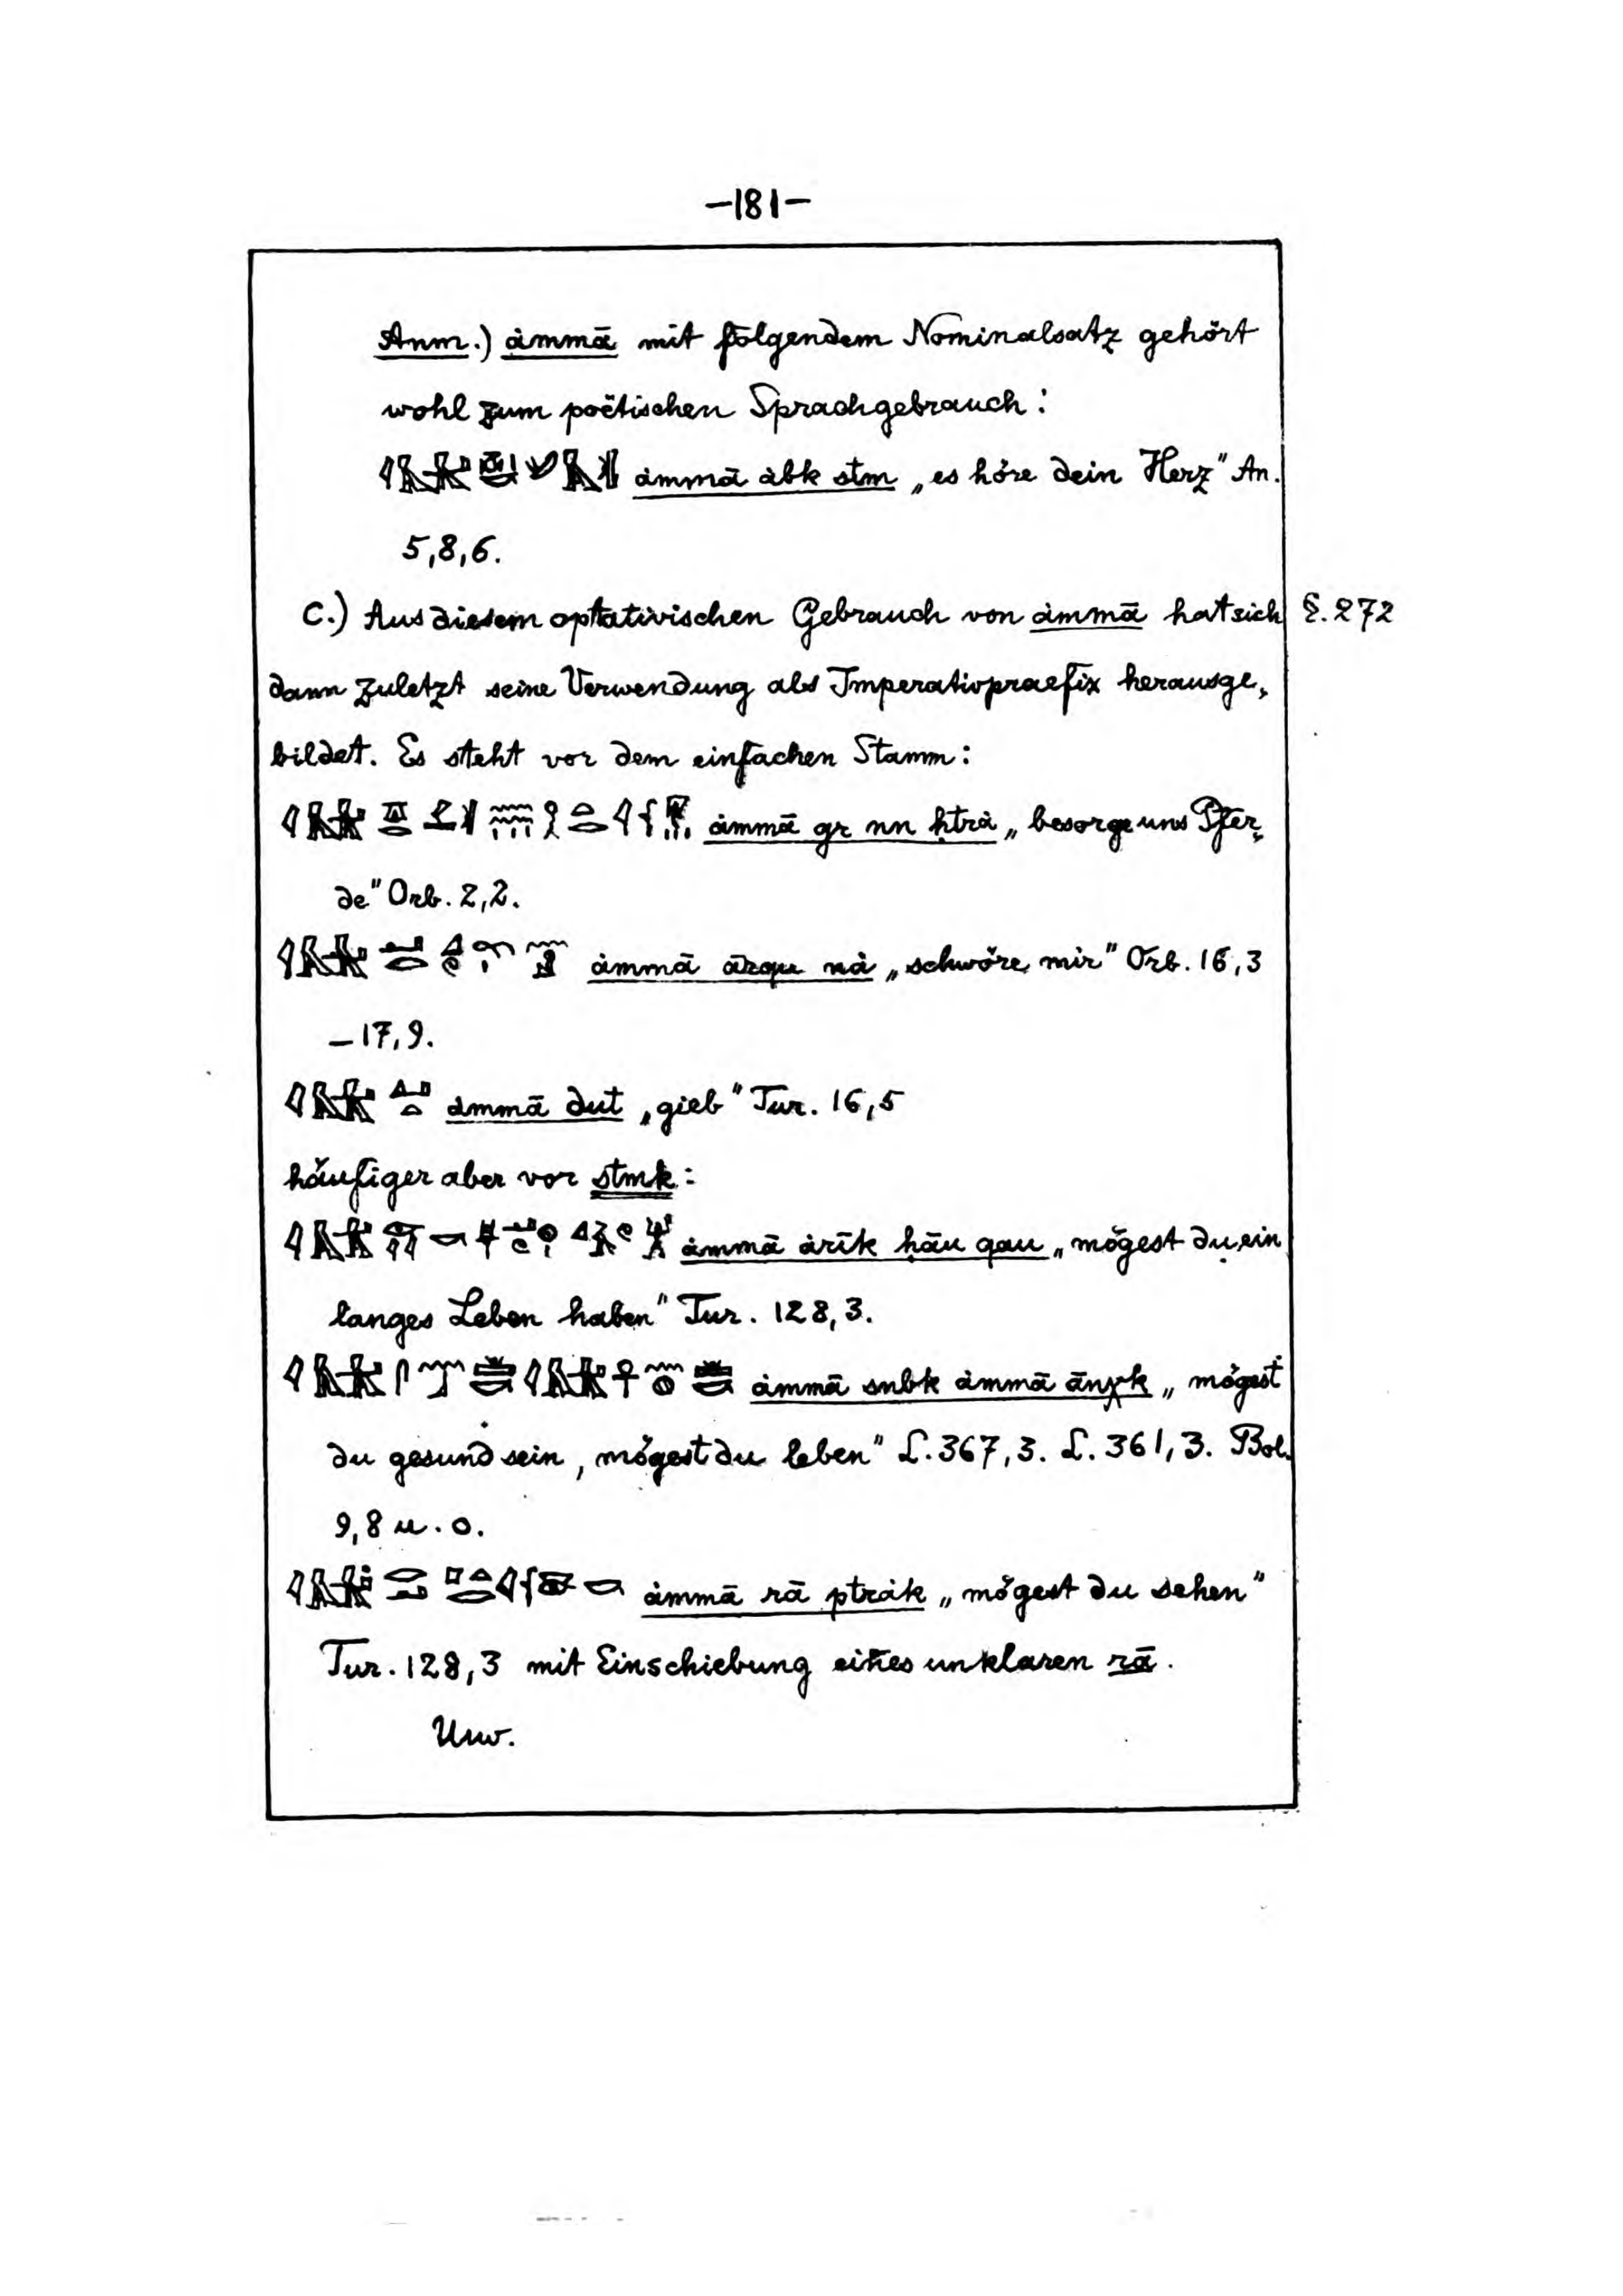 –181–
Anm.) ȧmmā mit folgendem Nominalsatz gehört
wohl zum poëtischen Sprachgebrauch:
ȧmmā ȧbk stm „es höre dein Herz" An.
5,8,6.
C.) Aus diesem optativischen Gebrauch von ȧmmā hat sich §. 272
dann zuletzt seine Verwendung als Imperativpraefix herausge-
bildet. Es steht vor dem einfachen Stamm:
ȧmmā gr nn ḥtrȧ „besorge uns Pfer-
de" Orb. 2,2.
ȧmmā ārqu nȧ „schwöre mir" Orb. 16,3
– 17,9.
ȧmmā dut „gieb" Tur. 16,5
häufiger aber vor stmk:
ȧmmā ȧrīk ḥāu qau „mögest du ein
langes Leben haben" Tur. 128,3.
ȧmmā snbk ȧmmā ānχk „mögest
du gesund sein, mögest du leben" L. 367,3. L. 361,3. Bol.
9,8 u. o.
ȧmmā rā ptrȧk „mögest du sehen"
Tur. 128,3 mit Einschiebung eines unklaren rā.
Usw.